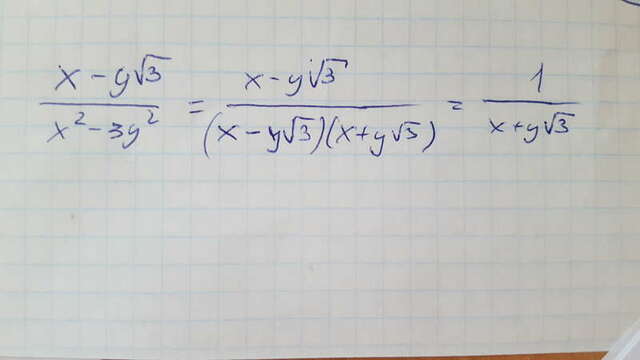 (x - y√3)/(x² - 3y²) = (x - y√3)/((x - y√3)(x + y√3)) = 1/(x + y√3)